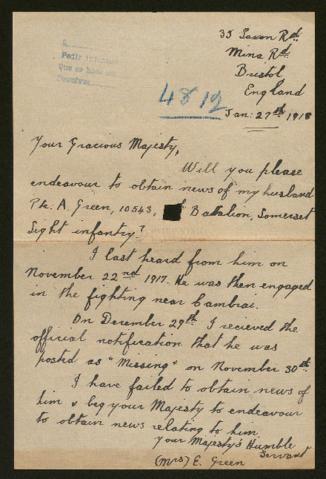 35 Saxon Rd.
Mina Rd.
Bristol
England
Jan: 27th 1918
4812
Your Gracious Majesty,
Will you please
endeavour to obtain news of my husband
Pte. A Green, 10543, Battalion, Somerset
Light infantry?
I last heard from him on
November 22nd 1917. He was then engaged
in the fighting near Cambrai.
On December 29th I recieved the
official notification that he was
posted as "Missing" on November 30th
I have failed to obtain news of
him & beg your Majesty to endeavour
to obtain news relating to him
Your Majesty's Humble
Servant
(Mrs) E. Green